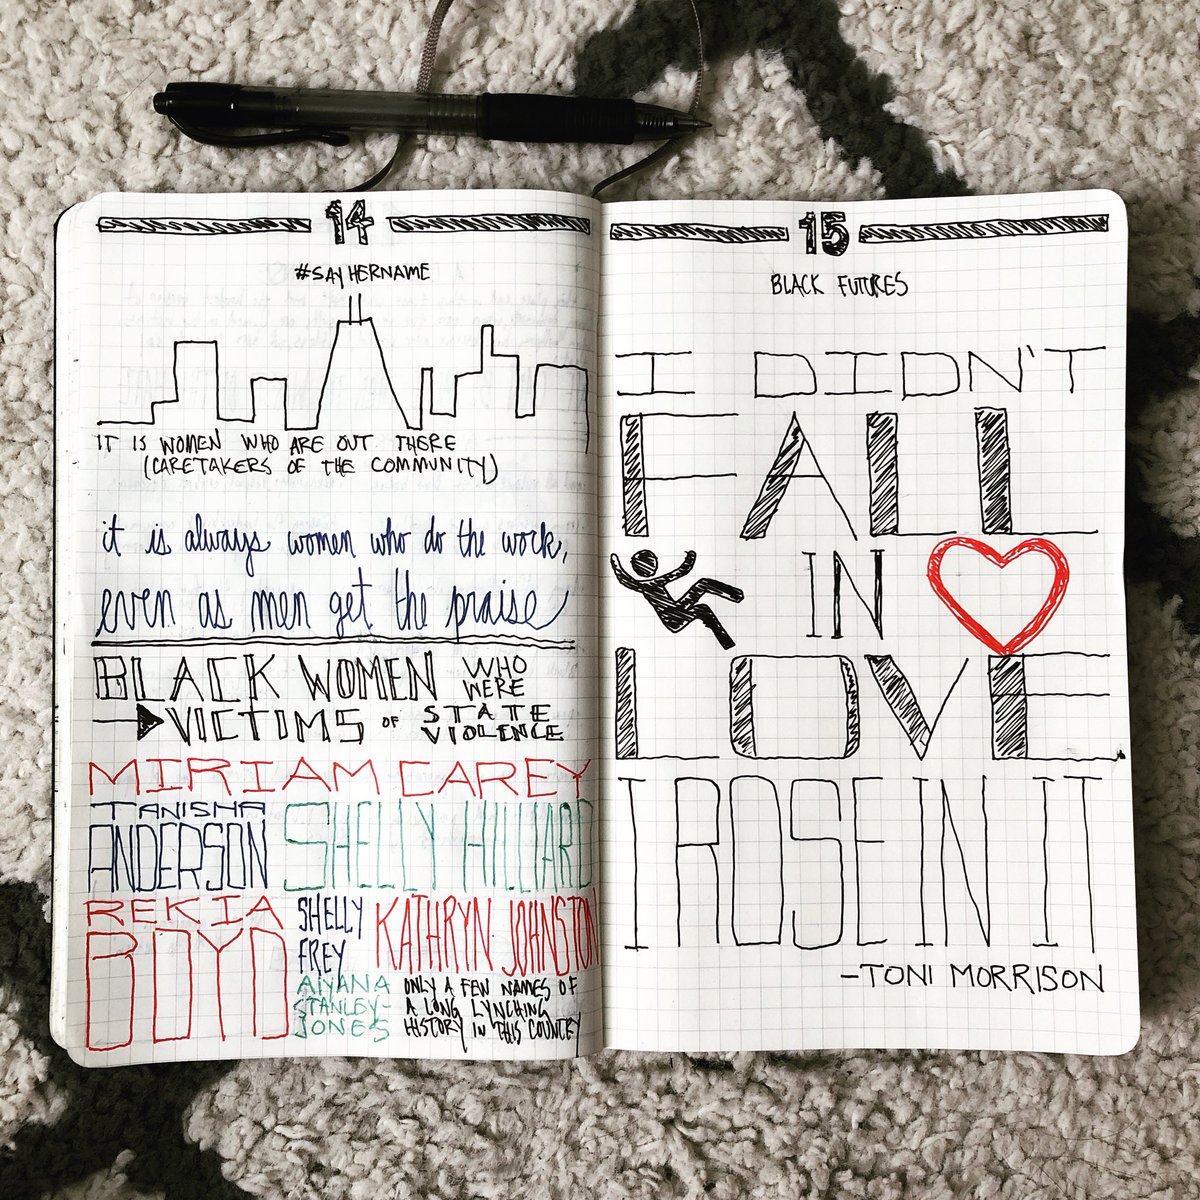 14
#SAYHERNAME
IT IS WOMEN WHO ARE OUT THERE
(CARETAKERS OF THE COMMUNITY)
it is always women who do the work,
even as men get the praise
BLACK WOMEN WHO WERE
VICTIMS OF STATE VIOLENCE
MIRIAM CAREY
TANISHA
ANDERSON
SHELLY HILLIARD
REKIA
BOYD
SHELLY
FREY
KATHRYN JOHNSTON
AIYANA
STANLEY-
JONES
ONLY A FEW NAMES OF
A LONG LYNCHING
HISTORY IN THIS COUNTRY
15
BLACK FUTURES
I DIDN'T
FALL
IN
LOVE
I ROSE IN IT
-TONI MORRISON